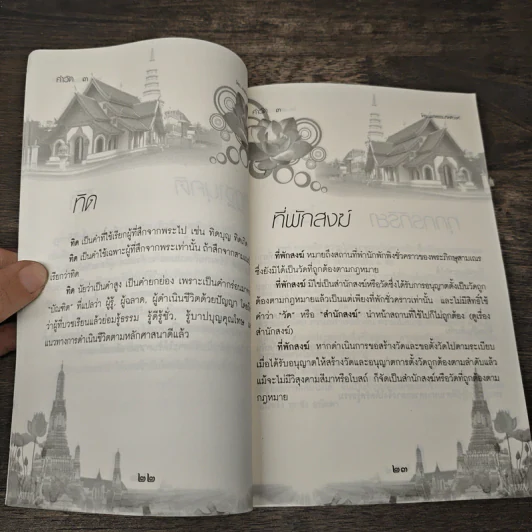 คำวัด ๓
ทิด
ทิด เป็นคำที่ใช้เรียกผู้ที่สึกจากพระไป เช่น ทิดบุญ ทิด
ทิด เป็นคำใช้เฉพาะผู้ที่สึกจากพระเท่านั้น ถ้าสึกจากสามเณร
เรียกว่าทิด
ทิด นับว่าเป็นคำสูง เป็นคำยกย่อง เพราะเป็นคำที่กร่อนมา
“บัณฑิต” ที่แปลว่า ผู้รู้, ผู้ฉลาด, ผู้ดำเนินชีวิตด้วยปัญญา โดย
ว่าผู้ที่บวชเรียนแล้วย่อมรู้ธรรม รู้ดีรู้ชั่ว, รู้บาปบุญคุณโทษ
แนวทางการดำเนินชีวิตตามหลักศาสนาดีแล้ว
๒๒
๓
ที่พักสงฆ์
ที่พักสงฆ์ หมายถึงสถานที่พำนักพักพิงชั่วคราวของพระภิกษุสามเณร
ซึ่งยังมิได้เป็นวัดที่ถูกต้องตามกฎหมาย
ที่พักสงฆ์ มิใช่เป็นสำนักสงฆ์หรือวัดซึ่งได้รับการอนุญาตตั้งเป็นวัดถูก
ต้องตามกฎหมายแล้วเป็นแต่เพียงที่พักชั่วคราวเท่านั้น และไม่มีสิทธิใช้
คำว่า “วัด” หรือ “สำนักสงฆ์” นำหน้าสถานที่ที่ใช้ไปก็ไม่ถูกต้อง (ดูเรื่อง
สำนักสงฆ์)
ที่พักสงฆ์ หากดำเนินการขอสร้างวัดและขอตั้งวัดไปตามระเบียบ
เมื่อได้รับอนุญาตให้สร้างวัดและอนุญาตการตั้งวัดถูกต้องตามลำดับแล้ว
แม้จะไม่มีวิสุงคามสีมาหรือโบสถ์ ก็จัดเป็นสำนักสงฆ์หรือวัดที่ถูกต้องตาม
กฎหมาย
๒๓